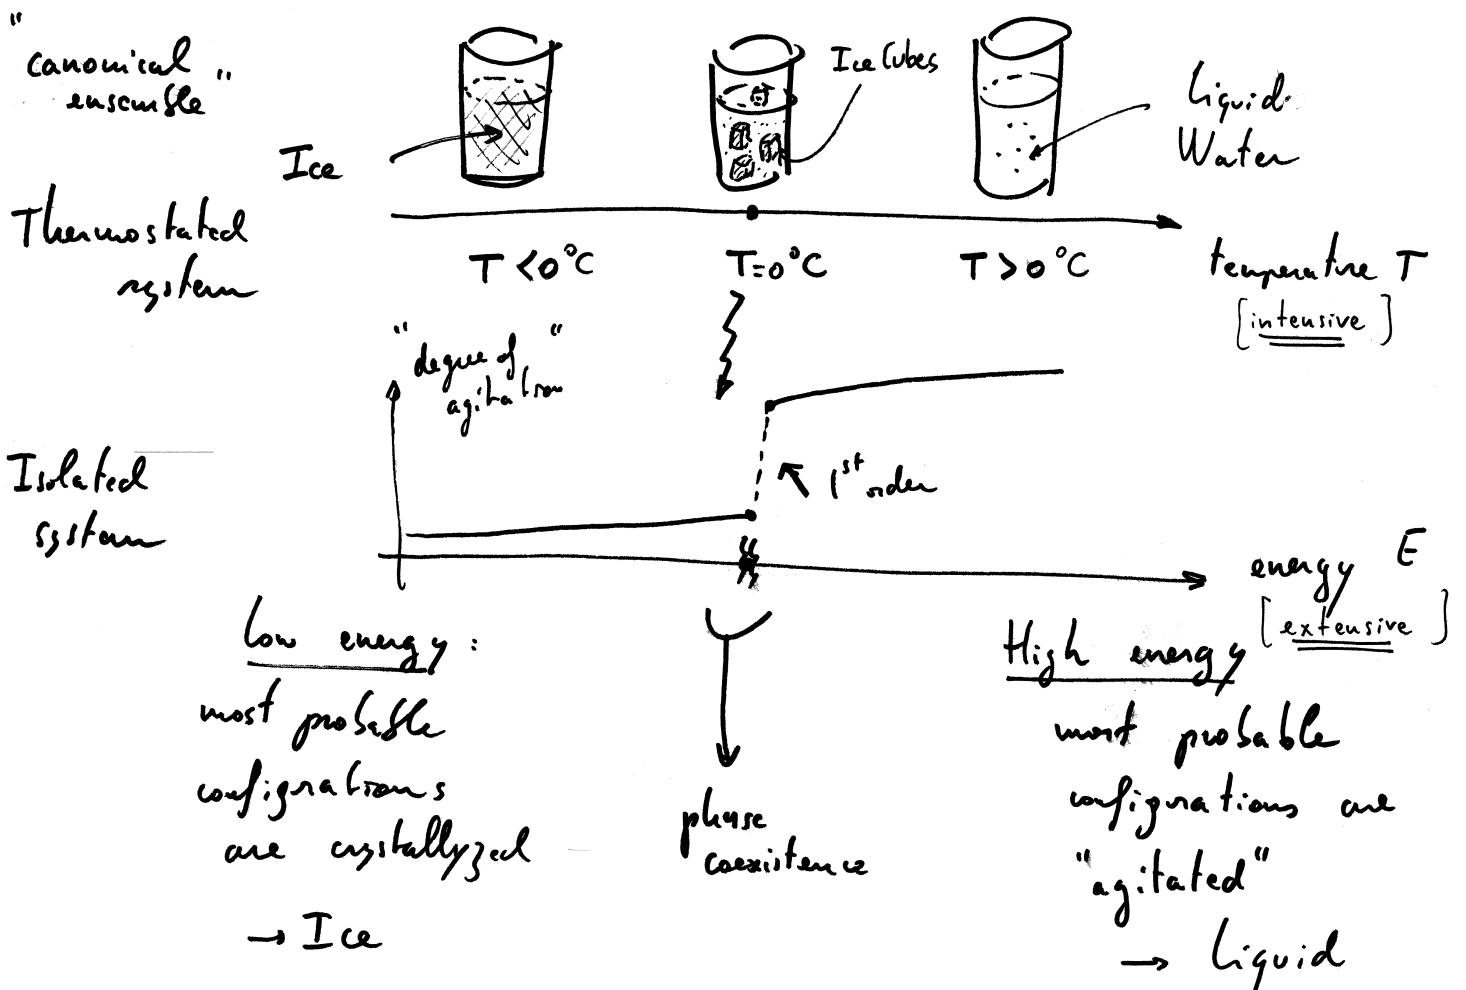 "
canonical
ensemble"
Ice
Ice Cubes
Liquid
Water
Thermostated
system
T<0°C
T=0°C
T>0°C
temperature T
[intensive]
"degree of
agitation"
1st order
Isolated
system
energy E
[extensive]
Low energy:
most probable
configurations
are crystallyzed
→ Ice
phase
coexistence
High energy
most probable
configurations are
"agitated"
→ Liquid